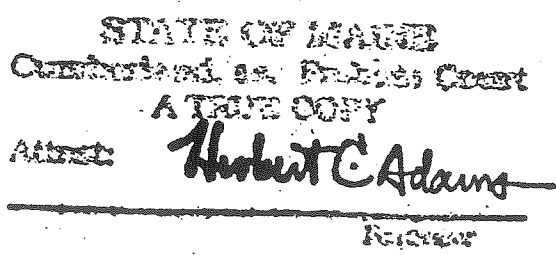 STATE OF MAINE
Cumberland ss. Probate Court
A TRUE COPY
Attest: Herbert C. Adams
Register